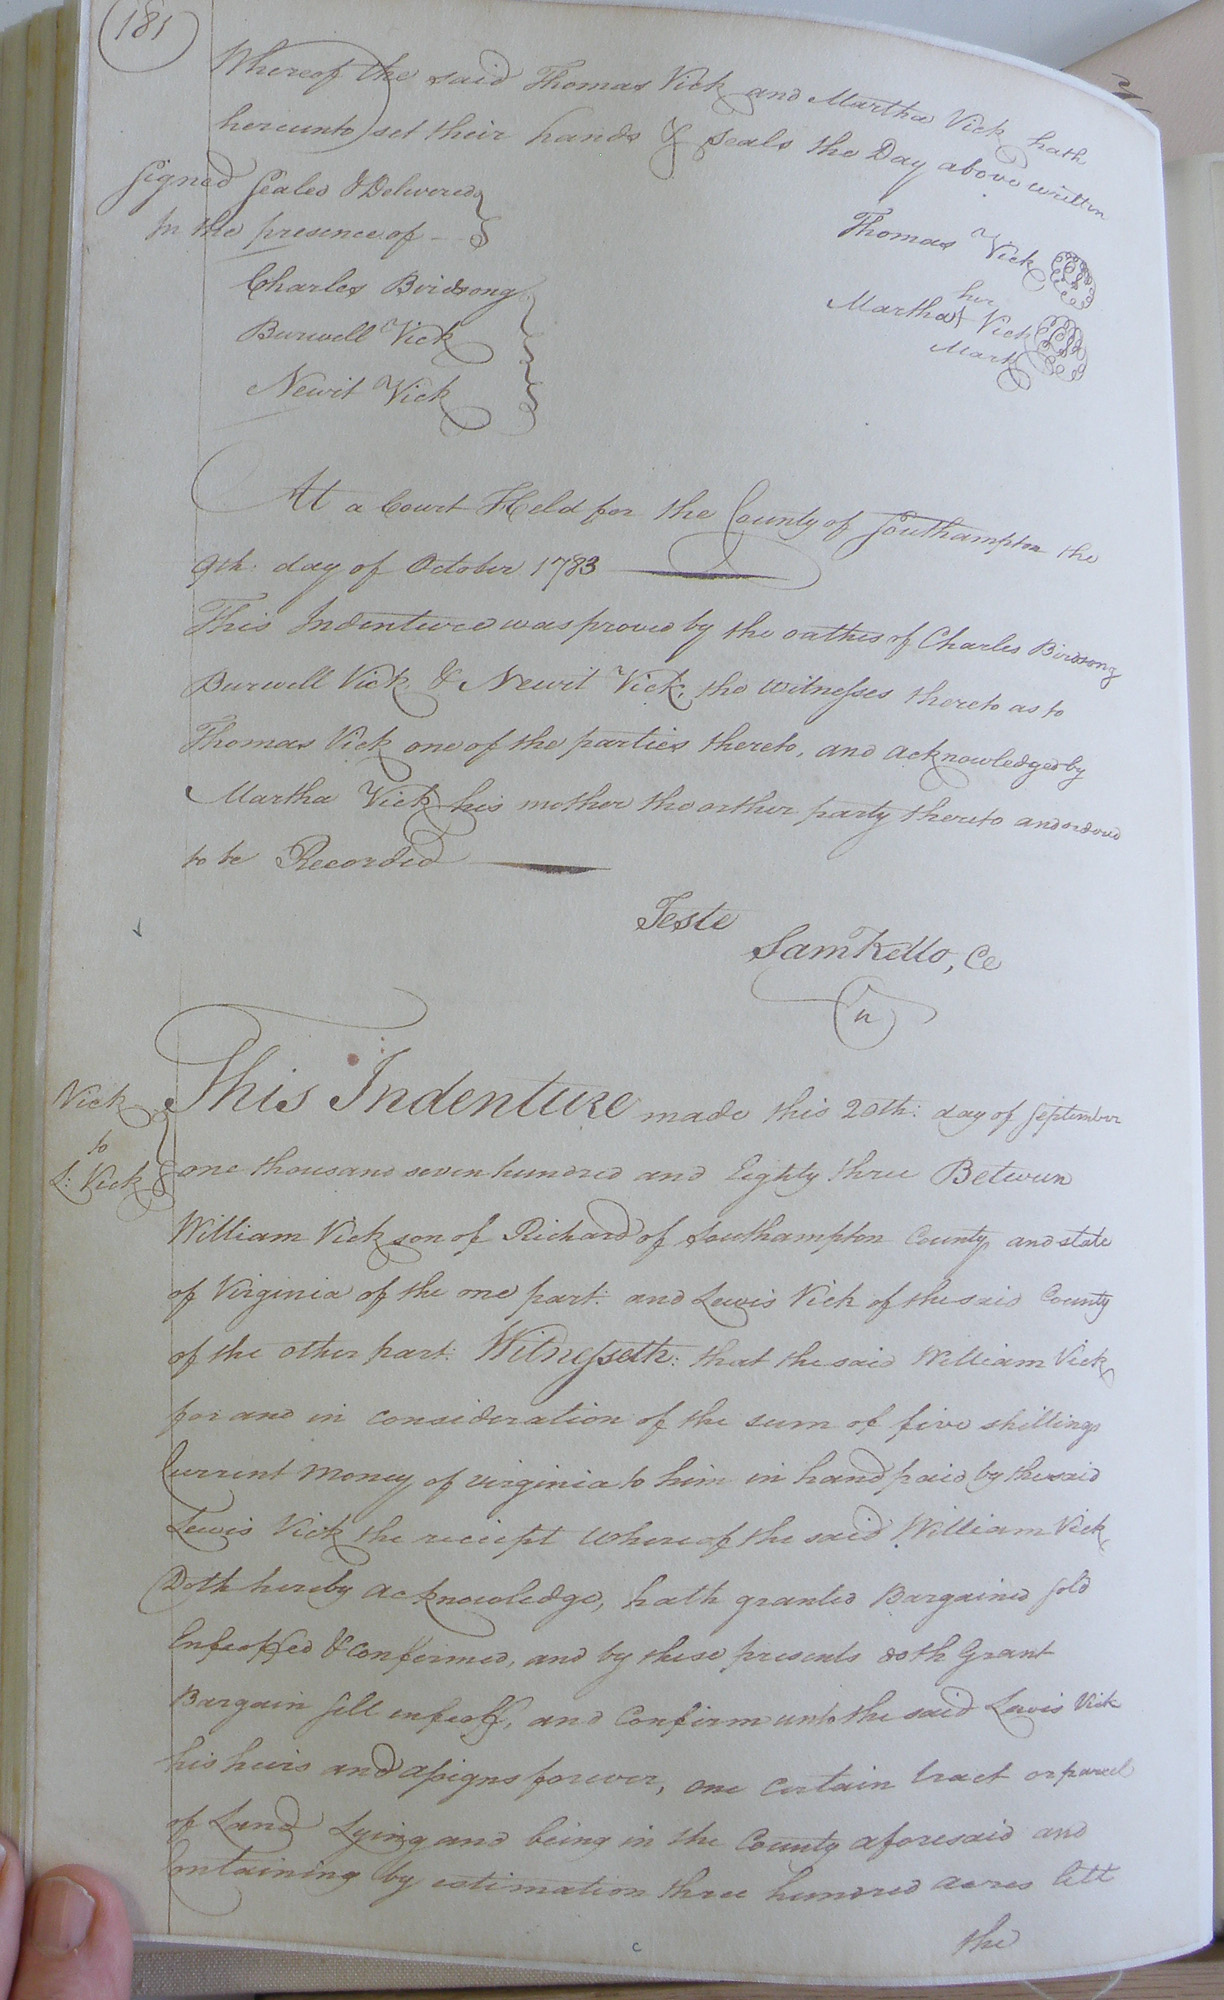 181
Whereof the said Thomas Vick and Martha Vick hath
hereunto set their hands & seals the Day above written
Signed Sealed & Delivered
In the presence of
Thomas Vick
Charles Birdsong
her
Martha Vick
Mark
Burwell Vick
Newit Vick
At a Court Held for the County of Southampton the
9th: day of October 1783
This Indenture was proved by the oathes of Charles Birdsong
Burwell Vick & Newit Vick, the witnesses thereto as to
Thomas Vick one of the parties thereto, and acknowledged by
Martha Vick his mother the orther party thereto and ordered
to be Recorded
Teste
Sam Kello, Ce
Vick
to
L: Vick
This Indenture made this 20th: day of September
one thousand seven hundred and Eighty three Between
William Vick son of Richard of Southampton County and state
of Virginia of the one part: and Lewis Vick of the said County
of the other part: Witnesseth: that the said William Vick
for and in consideration of the sum of five shillings
Current money of virginia to him in hand paid by the said
Lewis Vick the reciept whereof the said William Vick
Doth hereby acknowledge, hath granted Bargained sold
Enfeoffed & confirmed, and by these presents doth Grant
Bargain Sell enfeoff, and Confirm unto the said Lewis Vick
his heirs and assigns forever, one certain tract or parcel
of Land Lying and being in the County aforesaid and
Containing by estimation three hundred acres
the